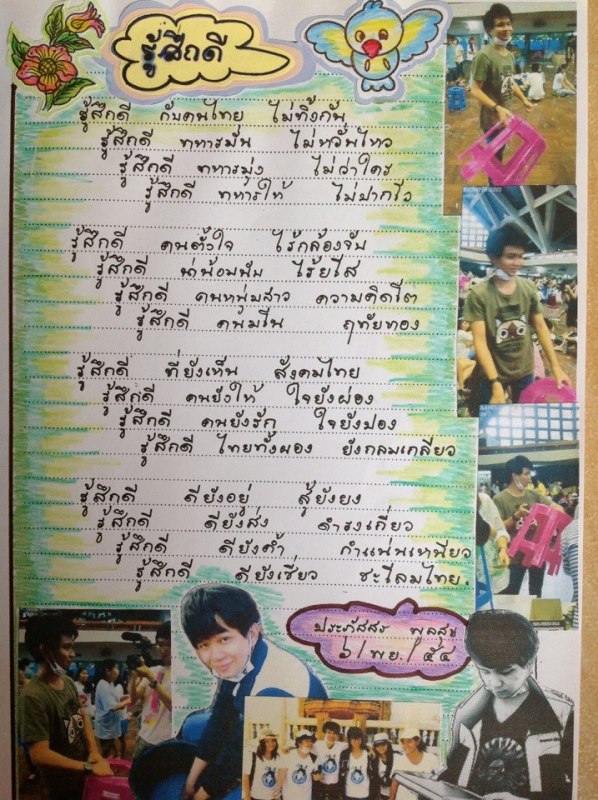 รู้สึกดี
รู้สึกดี กับคนไทย ไม่ทิ้งกัน
รู้สึกดี ทหารมั่น ไม่หวั่นไหว
รู้สึกดี ทหารมุ่ง ไม่ว่าใคร
รู้สึกดี ทหารให้ ไม่ปากไว
รู้สึกดี คนตั้งใจ ไร้กล้องจับ
รู้สึกดี น่าน้อมนับ ไร้ยโส
รู้สึกดี คนหนุ่มสาว ความคิดโต
รู้สึกดี คนมโน ฤทัยทอง
รู้สึกดี ที่ยังเห็น สังคมไทย
รู้สึกดี คนยังให้ ใจยังผ่อง
รู้สึกดี คนยังรัก ใจยังปอง
รู้สึกดี ไทยทั้งผอง ยังกลมเกลียว
รู้สึกดี ดียังอยู่ สู้ยังยง
รู้สึกดี ดียังส่ง ดำรงเดี่ยว
รู้สึกดี ดียังค้ำ กำแน่นเหนียว
รู้สึกดี ดียังเชี่ยว ชะโลมไทย.
ประภัสสร พูลสุข
๖/พย./๕๔